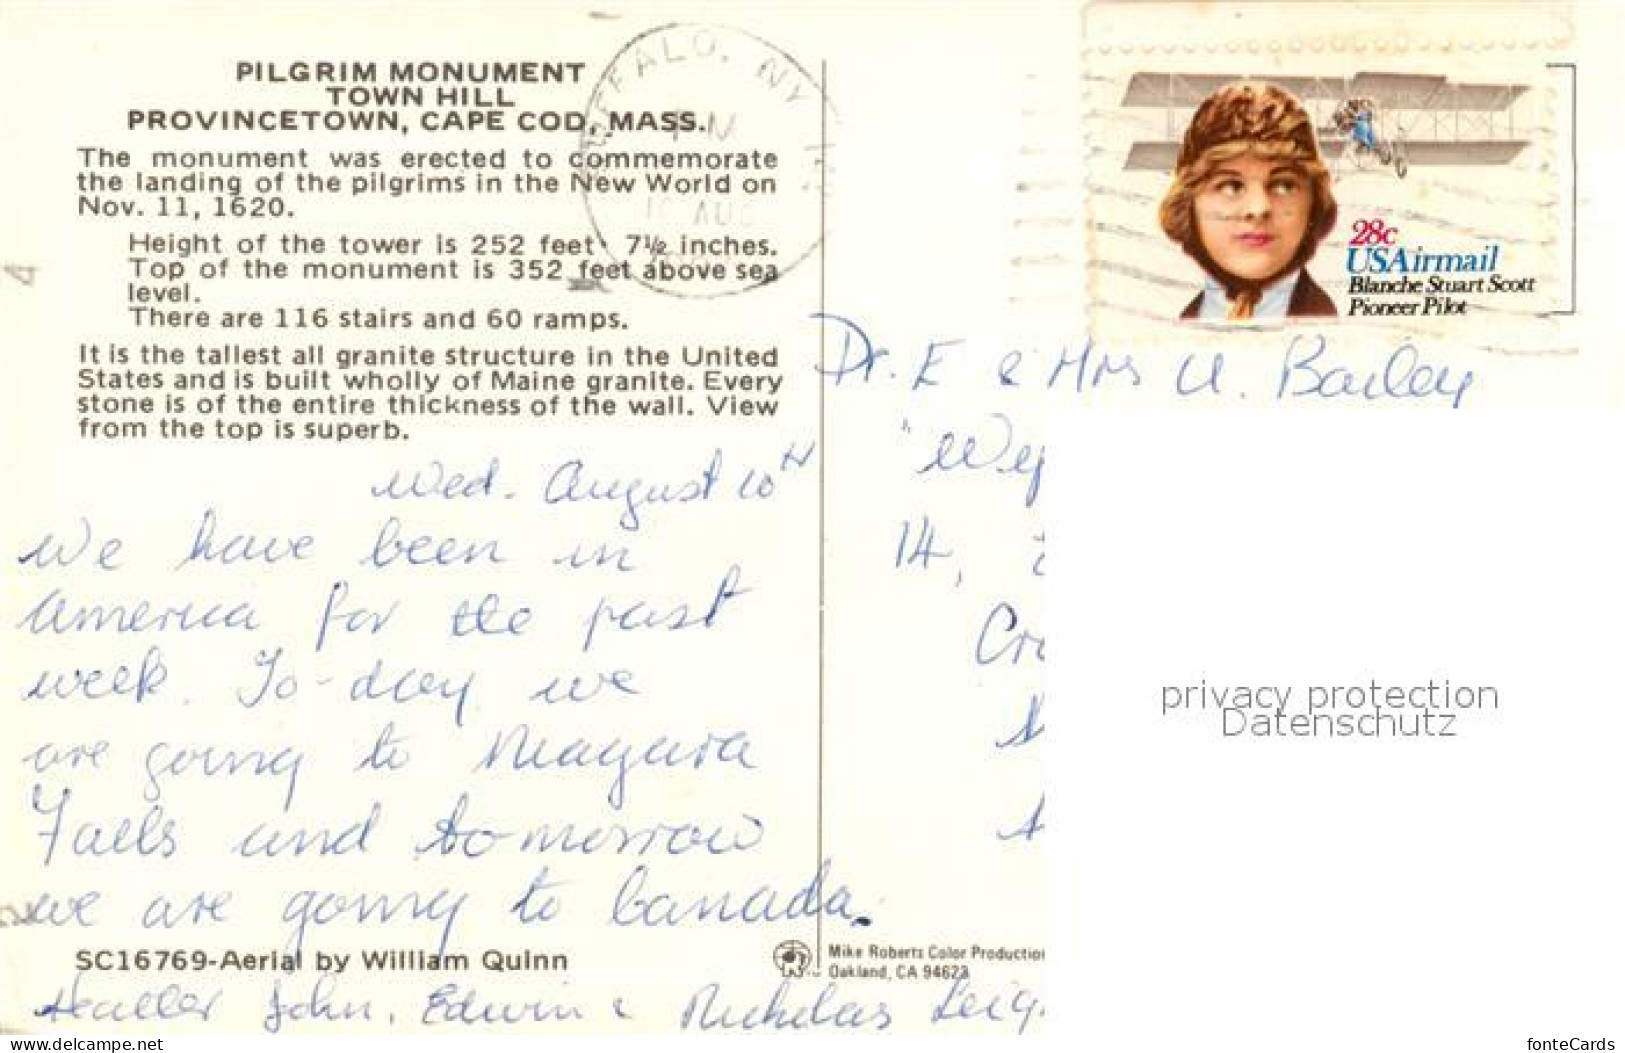 PILGRIM MONUMENT
TOWN HILL
PROVINCETOWN, CAPE COD, MASS.
The monument was erected to commemorate
the landing of the pilgrims in the New World on
Nov. 11, 1620.
Height of the tower is 252 feet 7½ inches.
Top of the monument is 352 feet above sea
level.
There are 116 stairs and 60 ramps.
It is the tallest all granite structure in the United
States and is built wholly of Maine granite. Every
stone is of the entire thickness of the wall. View
from the top is superb.
Wed. August 10th
We have been in
America for the past
week. To-day we
are going to Niagara
Falls and tomorrow
we are going to Canada.
SC16769-Aerial by William Quinn
Heather John, Edwin & Nicholas Leig
BUFFALO, NY
PM
10 AUG
28c
USAirmail
Blanche Stuart Scott
Pioneer Pilot
Dr. E & Mrs U. Bailey
14,
Mike Roberts Color Productio
Oakland, CA 94623
privacy protection
Datenschutz
www.delcampe.net
fonteCards